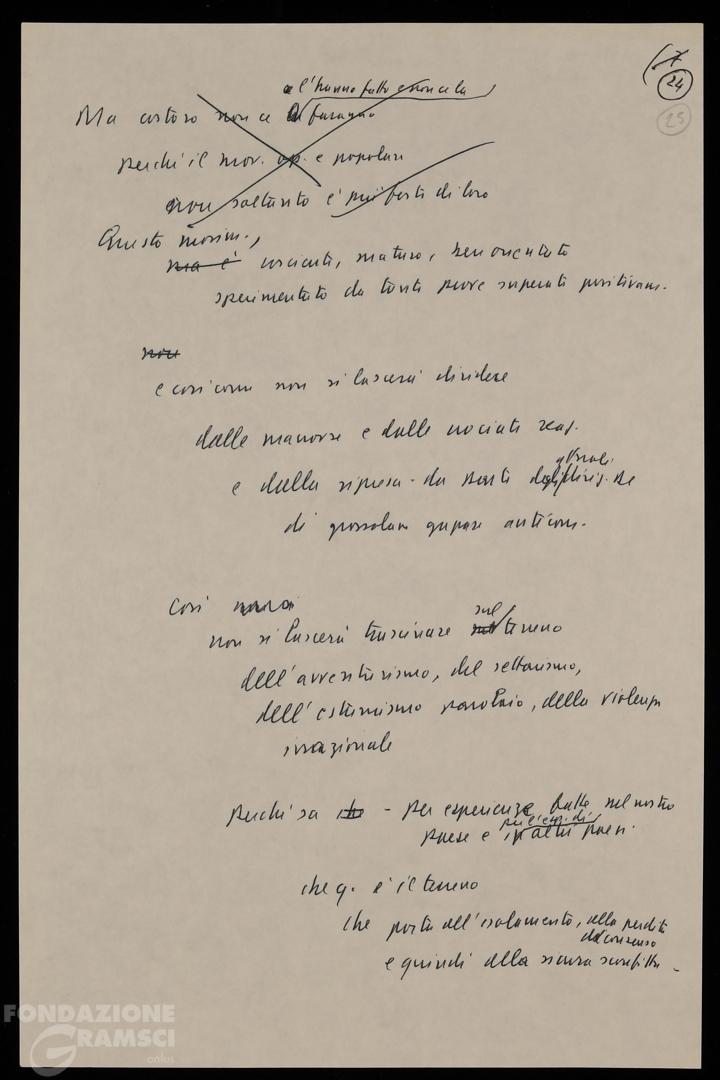 24
25
a l'hanno fatto e non ce la
Ma costoro non ce la faranno
perché il mov. op. e popolare
non soltanto è più forte di loro
Questo movim.,
ma è cosciente, maturo, ben orientato
sperimentato da tante prove superate positivam.
non
e così come non si lascerà dividere
dalle manovre e dalle crociate reaz.
e dalla ripresa - da parte degli attuali dirig. DC
di grossolane anticom.
Così
non si lascerà trascinare sul terreno
dell'avventurismo, del settarismo,
dell'estremismo parolaio, della violenza
irrazionale
perché sa che - per esperienze fatte nel nostro
paese e per l'esp. di altri paesi -
che q. è il terreno
che porta all'isolamento, alla perdita
del consenso
e quindi alla sicura sconfitta -
FONDAZIONE
GRAMSCI
onlus